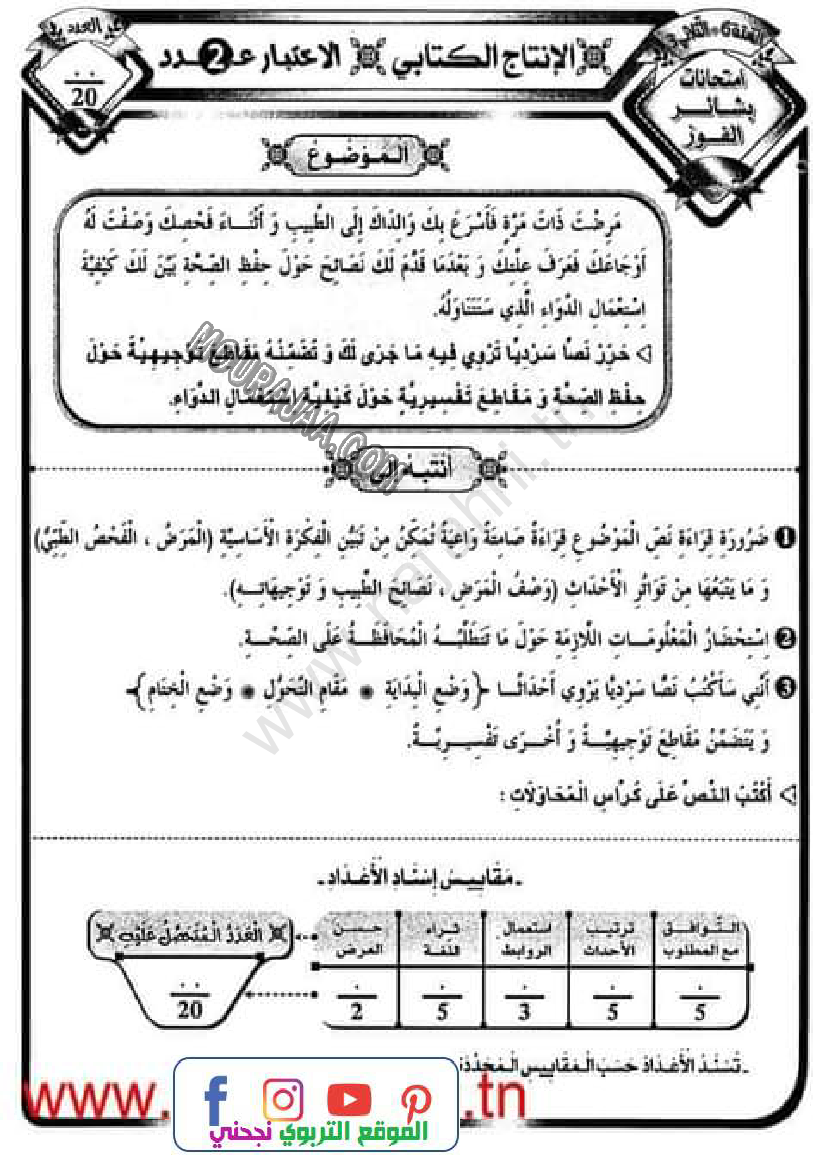 الإنتاج الكتابي الاعتبار عـ2ـدد
20
امتحانات
بشائر
الفوز
الْمَوْضُوعُ
مَرِضْتَ ذَاتَ مَرَّةٍ فَأَسْرَعَ بِكَ وَالِدَاكَ إِلَى الطَّبِيبِ وَ أَثْنَاءَ فَحْصِكَ وَصَفْتَ لَهُ
أَوْجَاعَكَ فَعَرَفَ عِلَّتَكَ وَ بَعْدَمَا قَدَّمَ لَكَ نَصَائِحَ حَوْلَ حِفْظِ الصِّحَّةِ بَيَّنَ لَكَ كَيْفِيَّةَ
اِسْتِعْمَالِ الدَّوَاءِ الَّذِي سَتَتَنَاوَلُهُ.
حَرِّرْ نَصًّا سَرْدِيًّا تَرْوِي فِيهِ مَا جَرَى لَكَ وَ تُضَمِّنُهُ مَقَاطِعَ تَوْجِيهِيَّةً حَوْلَ
حِفْظِ الصِّحَّةِ وَ مَقَاطِعَ تَفْسِيرِيَّةٍ حَوْلَ كَيْفِيَّةِ اِسْتِعْمَالِ الدَّوَاءِ.
MOURAJAA.COM
أَنْتَبِهُ إِلَى
1 ضَرُورَةِ قِرَاءَةِ نَصِّ الْمَوْضُوعِ قِرَاءَةً صَامِتَةً وَاعِيَةً تُمَكِّنُ مِنْ تَبَيُّنِ الْفِكْرَةِ الْأَسَاسِيَّةِ (الْمَرَضُ ، الْفَحْصُ الطِّبِّيُّ)
وَ مَا يَتْبَعُهَا مِنْ تَوَاتُرِ الْأَحْدَاثِ (وَصْفُ الْمَرَضِ ، نَصَائِحُ الطَّبِيبِ وَ تَوْجِيهَاتِهِ).
2 اِسْتِحْضَارُ الْمَعْلُومَاتِ اللَّازِمَةِ حَوْلَ مَا تَتَطَلَّبُهُ الْمُحَافَظَةُ عَلَى الصِّحَّةِ.
3 أَنَّنِي سَأَكْتُبُ نَصًّا سَرْدِيًّا يَرْوِي أَحْدَاثًا {وَضْعِ الْبِدَايَةِ * مَقَامِ التَّحَوُّلِ * وَضْعِ الْخِتَامِ}
وَ يَتَضَمَّنُ مَقَاطِعَ تَوْجِيهِيَّةً وَ أُخْرَى تَفْسِيرِيَّةً.
أَكْتُبُ النَّصَّ عَلَى كُرَّاسِ الْمُحَاوَلَاتِ :
- مَقَايِيسُ إِسْنَادِ الْأَعْدَادِ -
التّوافق مع المطلوب ترتيب الأحداث استعمال الروابط ثراء اللّغة حسن العرض الْعَدَدُ الْمُتَحَصَّلُ عَلَيْهِ
5 5 3 5 2 20
- تُسْنَدُ الْأَعْدَادُ حَسَبَ الْمَقَايِيسِ الْمُحَدَّدَةِ
www. .tn
الموقع التربوي نجحني